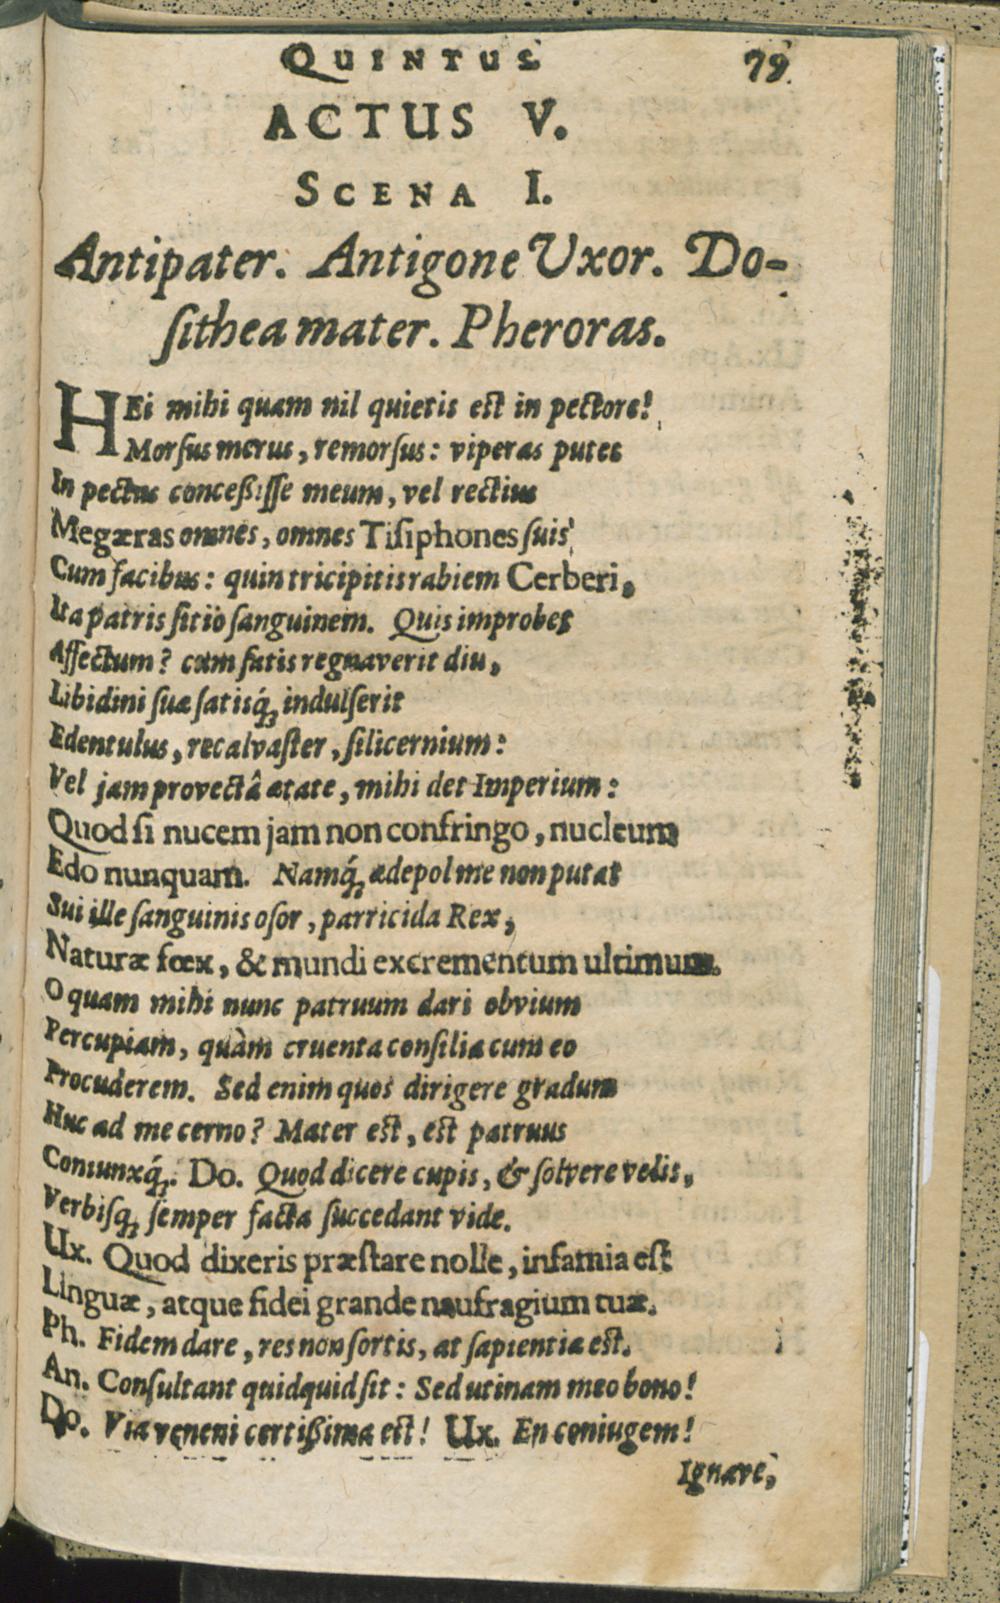 QUINTUS 79
ACTUS V.
SCENA I.
Antipater. Antigone Uxor. Do-
ſithea mater. Pheroras.
HEi mihi quam nil quietis est in pectore!
Morſus merus, remorſus: viperas putes
In pectus conceßiſſe meum, vel rectius
Megæras omnes, omnes Tiſiphones ſuis
Cum facibus: quin tricipitis rabiem Cerberi,
Ita patris ſitio ſanguinem. Quis improbet
Affectum? cum ſatis regnaverit diu,
Libidini ſuæ ſatisq́; indulſerit
Edentulus, recalvaſter, ſilicernium:
Vel jam provectâ ætate, mihi det Imperium:
Quod ſi nucem jam non confringo, nucleum
Edo nunquam. Namq́; ædepol me non putat
Sui ille ſanguinis oſor, parricida Rex,
Naturæ fœx, & mundi excrementum ultimum.
O quam mihi nunc patruum dari obvium
Percupiam, quàm cruenta conſilia cum eo
Procuderem. Sed enim quos dirigere gradum
Huc ad me cerno? Mater est, est patruus
Coniunxq́;. Do. Quod dicere cupis, & ſolvere velis,
Verbiſq; ſemper facta ſuccedant vide.
Ux. Quod dixeris præſtare nolle, infamia eſt
Linguæ, atque fidei grande naufragium tuæ.
Ph. Fidem dare, res non ſortis, at ſapientiæ est.
An. Conſultant quidquid ſit: Sed utinam meo bono!
Do. Via veneni certißima est! Ux. En coniugem!
Ignare,